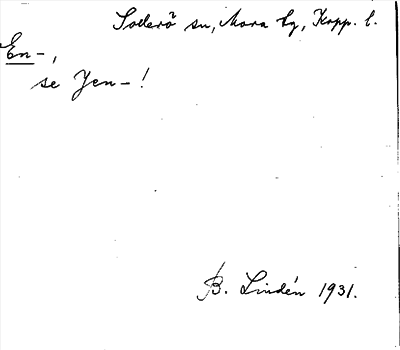 Sollerö sn, Mora hg, Kopp. l.
En-,
se Yen-!
B. Lindén 1931.